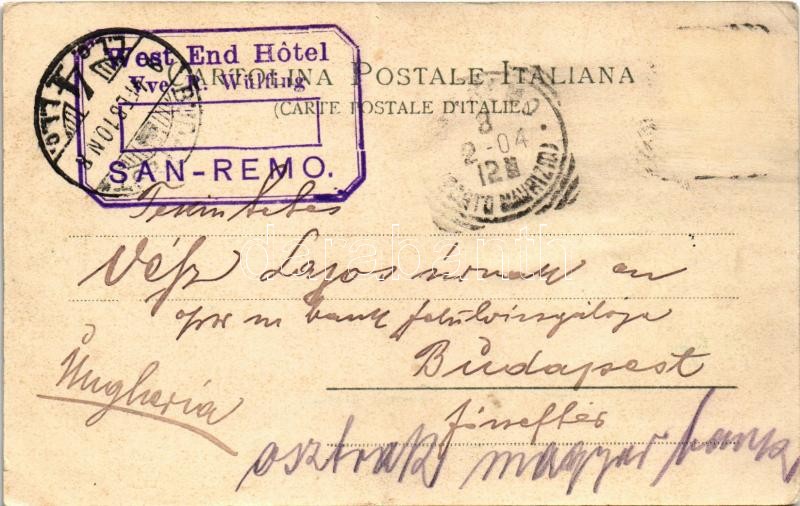 West End Hôtel
Vve. R. Wulfing
SAN-REMO.
CARTOLINA POSTALE ITALIANA
(CARTE POSTALE D'ITALIE)
8
2-04
12 M
(PORTO MAURIZIO)
Tekintetes
Vész Lajos urnak
bank felülvizsgálója
Budapest
Ungheria
osztrak magyar bank
darabanth